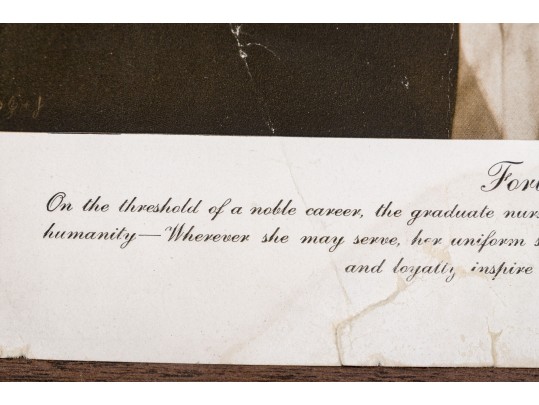 On the threshold of a noble career, the graduate
humanity—Wherever she may serve, her uniform
and loyalty inspire